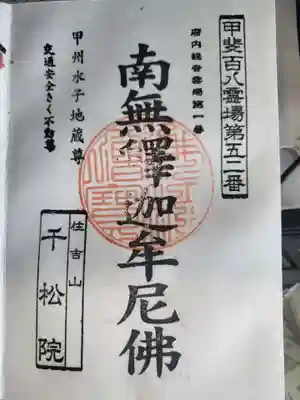 甲斐百八霊場第五二番
府内観音霊場第一番
南無釋迦牟尼佛
甲州水子地蔵尊
交通安全きく不動尊
住吉山
千松院